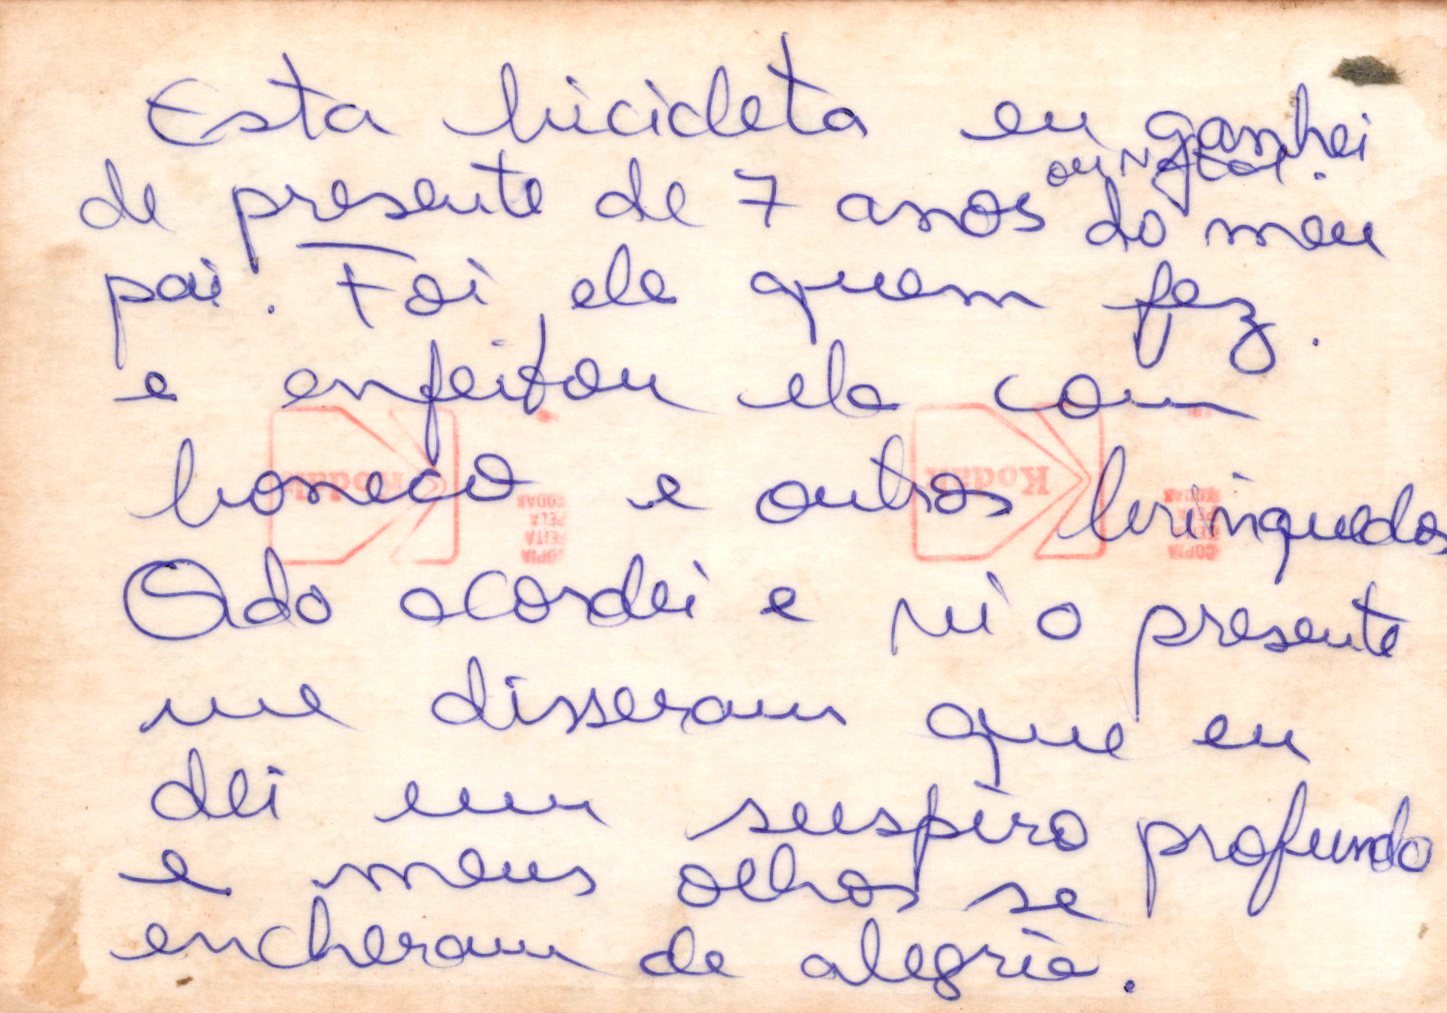 Esta bicicleta eu ganhei
de presente de 7 anos do meu
pai. Foi ele quem fez.
e enfeitou ela com
boneco e outros brinquedos
Qdo acordei e vi o presente
me disseram que eu
dei um suspiro profundo
e meus olhos se
encheram de alegria.
Kodak
COPIA
FEITA
PELA
KODAK
Kodak
COPIA
FEITA
PELA
KODAK